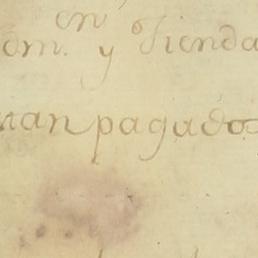 en
om. y Tienda
nan pagados